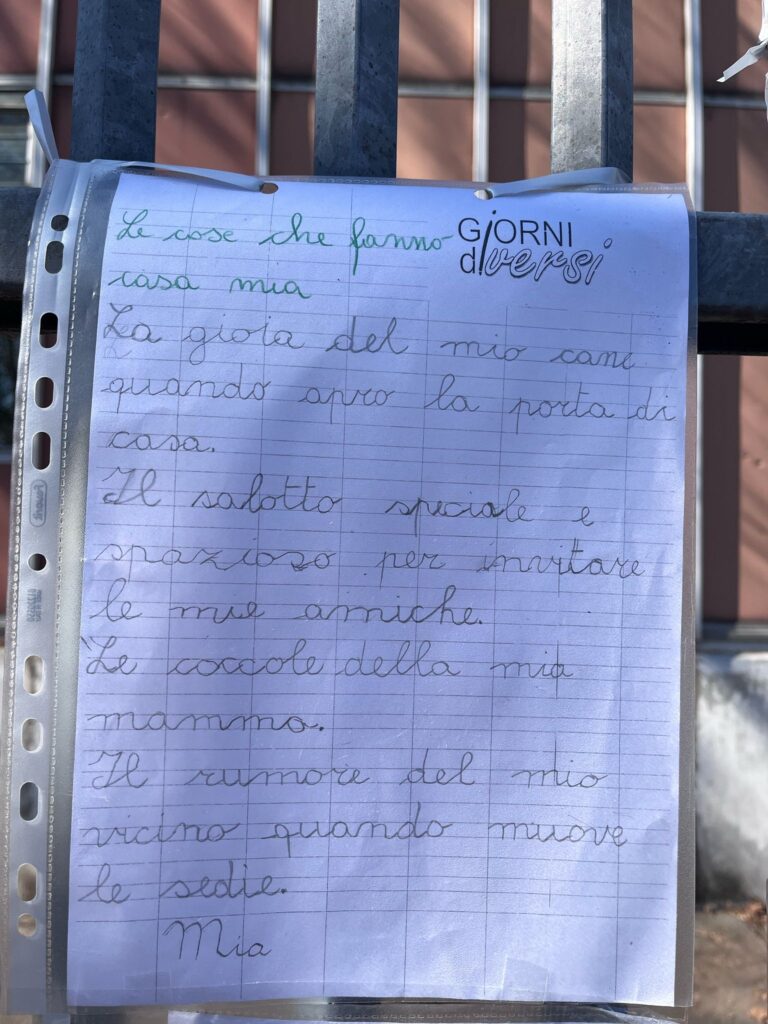 Le cose che fanno
casa mia
GiORNI
diversi
La gioia del mio cane
quando apro la porta di
casa.
Il salotto speciale e
spazioso per invitare
le mie amiche.
Le coccole della mia
mamma.
Il rumore del mio
vicino quando muove
le sedie.
Mia